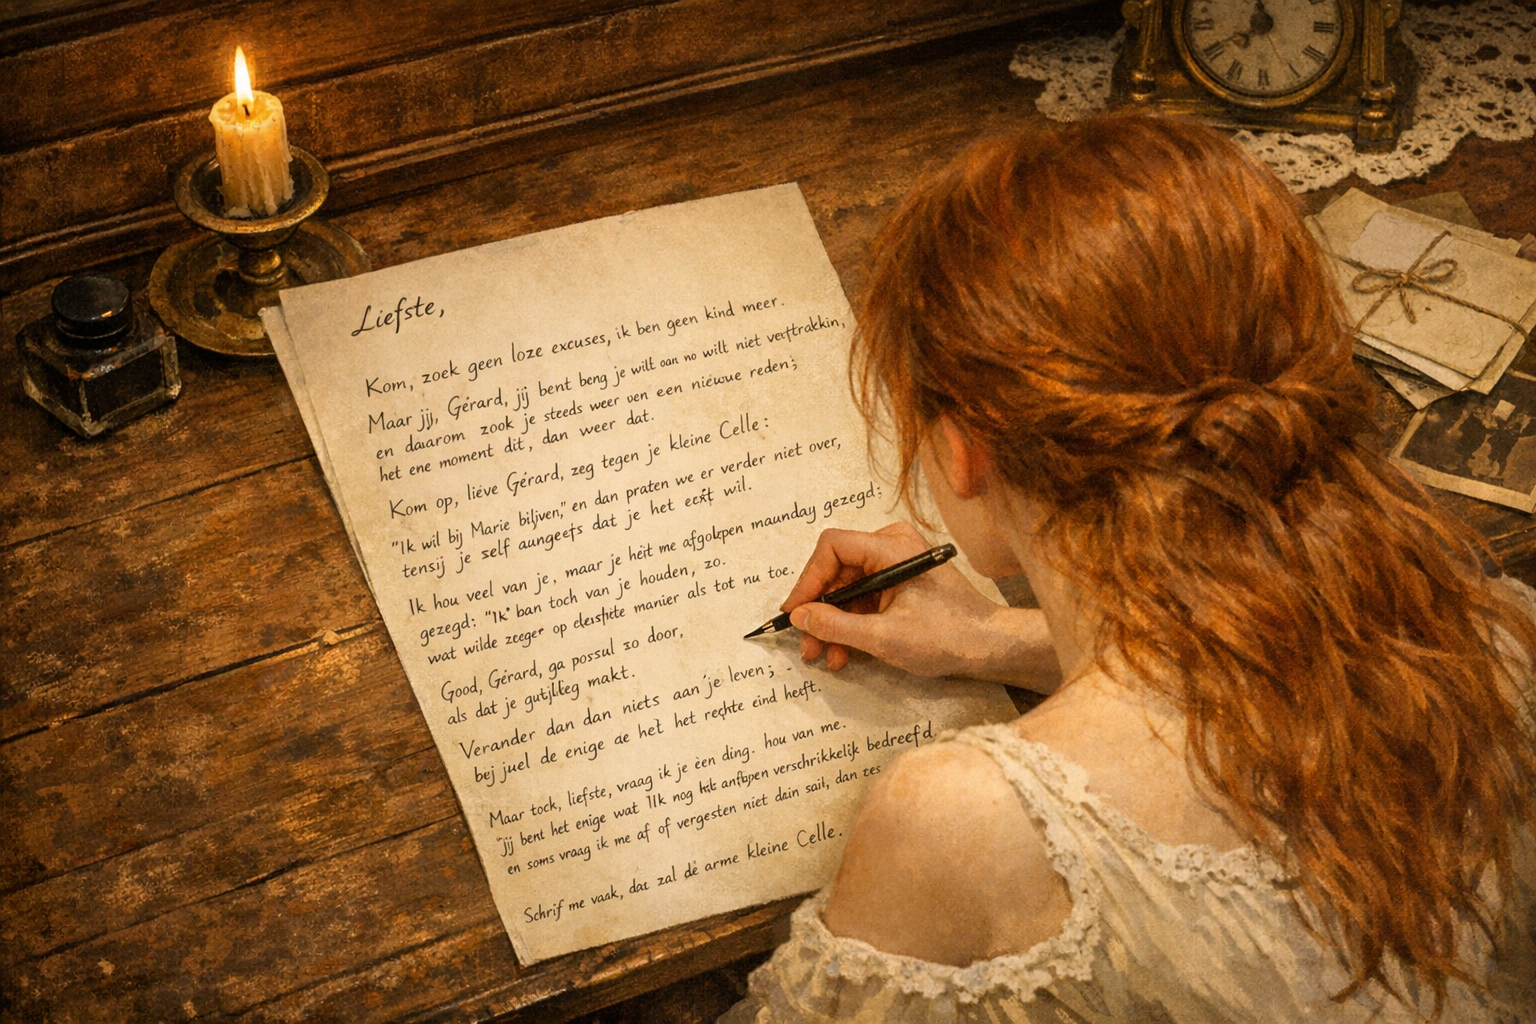 Liefste,
Kom, zoek geen loze excuses, ik ben geen kind meer.
Maar jij, Gérard, jij bent beng je wilt no wilt niet
en daarom zook je steeds weer een nieuwe reden;
het ene moment dit, dan weer dat.
Kom op, liéve Gérard, zeg tegen je kleine Celle:
"Ik wil bij Marie en dan praten we er verder niet over,
tensij je self dat je het wil.
Ik hou veel van je, maar je me maunday gezegd:
gezegd: "Ik ban toch van je houden, zo.
wat wilde op manier als tot nu toe.
Good, Gérard, ga possul zo door,
als dat je makt.
Verander dan dan niets aan je leven; -
bej juel de enige ae het het rechte eind heeft.
Maar tock, liefste, vraag ik je één ding. hou van me.
"jij bent het enige wat nog verschrikkelijk bedreefd
en soms vraag ik me af of vergesten niet dain sail, dan
Schrif me vaak, dat zal de arme kleine Celle.